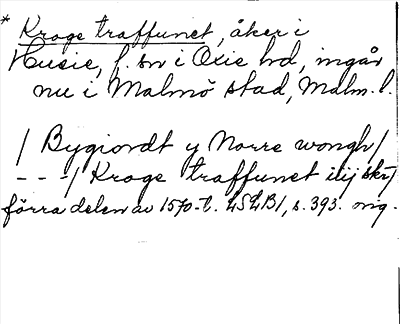 * Kroge traffunet, åker i
Husie, f. sn i Oxie hd, ingår
nu i Malmö stad, Malm. l.
/ Bygiordt y Norre wongh /
- - - / Kroge traffunet iiij skr /
förra delen av 1570-t. LSLB1, s. 393. orig.